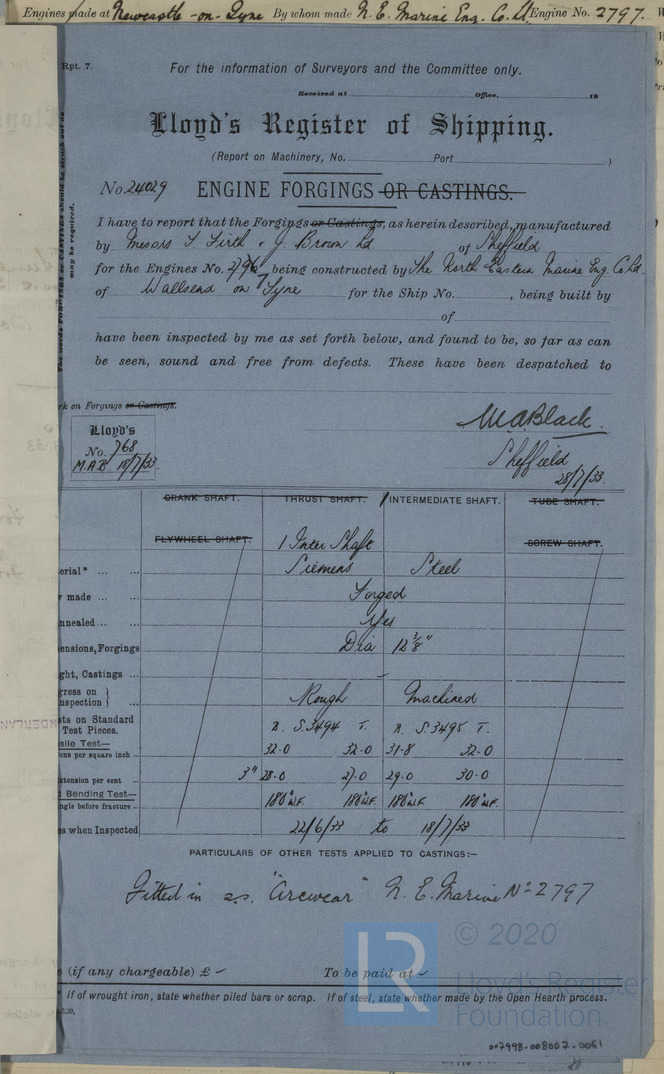 Engines made at Newcastle-on-Tyne By whom made N. E. Marine Eng. Co. Ld Engine No. 2797.
Rpt. 7.
For the information of Surveyors and the Committee only.
Received at Office, 19
Lloyd's Register of Shipping.
(Report on Machinery, No. Port )
No. 24029 ENGINE FORGINGS OR CASTINGS.
may be required.
I have to report that the Forgings or Castings, as herein described, manufactured
by Messrs T. Firth & J. Brown Ld of Sheffield
for the Engines No. 2797 being constructed by The North Eastern Marine Eng. Co Ld.
of Wallsend on Tyne for the Ship No. , being built by
of
have been inspected by me as set forth below, and found to be, so far as can
be seen, sound and free from defects. These have been despatched to
rk on Forgings or Castings.
Lloyd's
No. 768
M.A.B 18/7/33.
M.A.Black.
Sheffield
28/7/33.
CRANK SHAFT. THRUST SHAFT. INTERMEDIATE SHAFT. TUBE SHAFT.
FLYWHEEL SHAFT. 1 Inter Shaft SCREW SHAFT.
erial* ... ... Siemens Steel
w made ... ... Forged
nnealed ... ... Yes
ensions, Forgings Dia 12 3/8"
ght, Castings ... -
gress on } nspection } ... Rough Machined
sts on Standard Test Pieces. R. S.3494 T. R. S.3495 T.
sile Test—
ons per square inch ... 32.0 32.0 31.8 32.0
xtension per cent ... 3" 28.0 27.0 29.0 30.0
d Bending Test—
ngle before fracture ... 180° U.F. 180° U.F. 180° U.F. 180° U.F.
s when Inspected 22/6/33 to 18/7/33
PARTICULARS OF OTHER TESTS APPLIED TO CASTINGS:—
Fitted in s.s. "Arcwear" N. E. Marine No 2797
© 2020
LR
Lloyd's Register
Foundation
e (if any chargeable) £ - To be paid at -
* If of wrought iron, state whether piled bars or scrap. If of steel, state whether made by the Open Hearth process.
007998-008007-0061